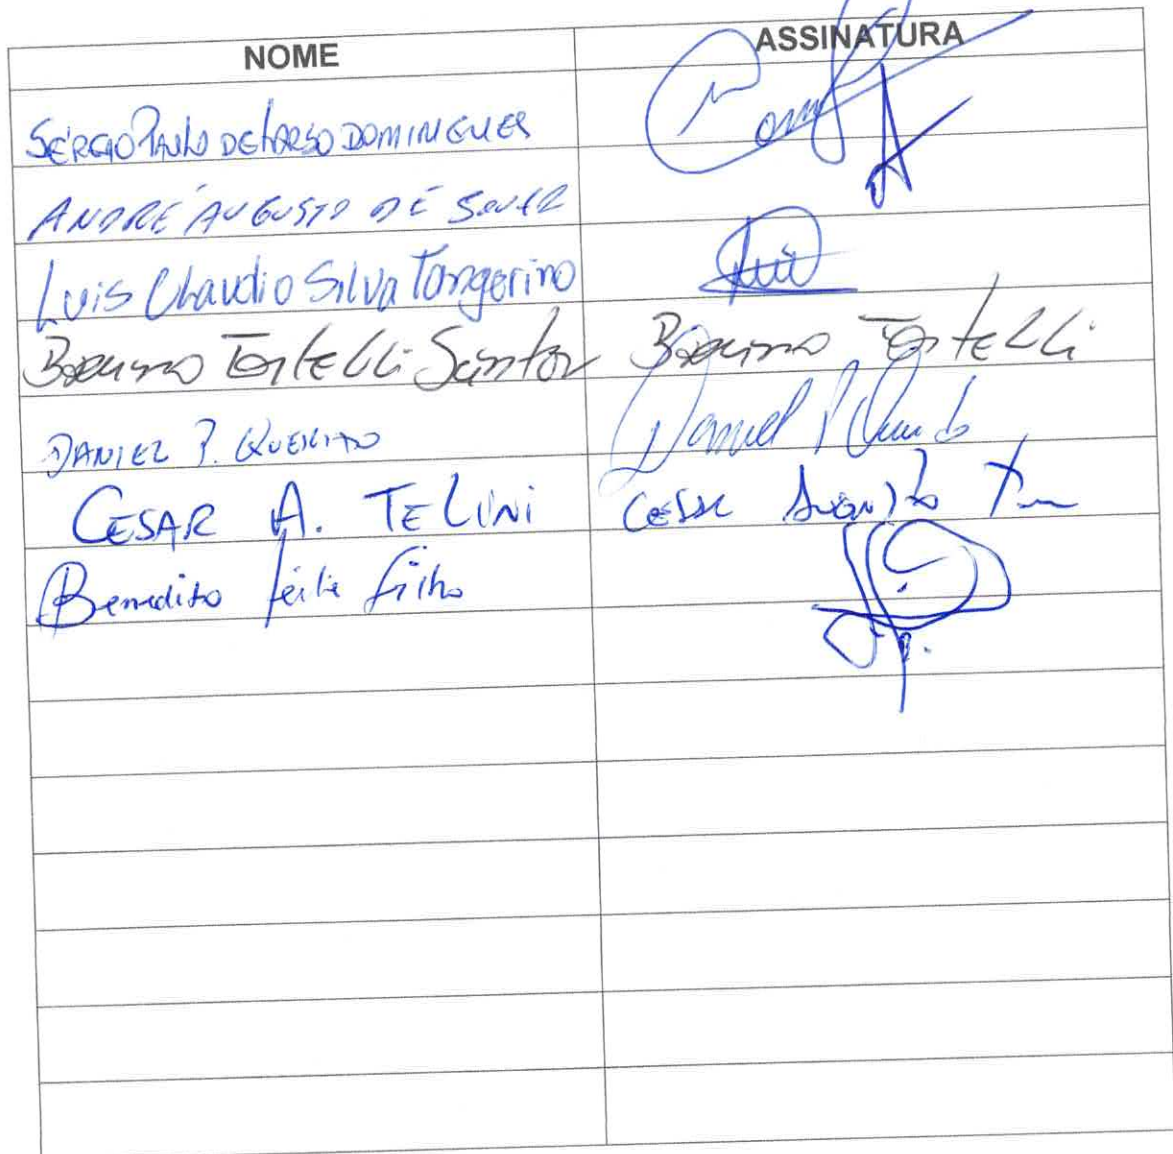 NOME ASSINATURA
SÉRGIO PAULO DE TARSO DOMINGUES
ANDRÉ AUGUSTO DE
Luis Claudio Silva Tangerino
Bruno Tortelli Santos Bruno Tortelli
DANIEL P. QUERIDO Daniel P
CESAR A. TELINI CESAR Augusto
Benedito Leite Filho